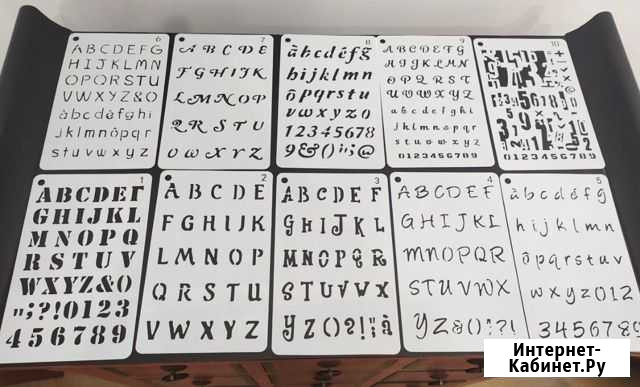 6
ABCDEFG
HIJKLMN
OPQRSTU
VWXYZ&O
àbcdèfghi
jklmnôpqr
stuvwxyz
7
ABCDE
FGHIJK
LMNOP
QRSTU
VWXYZ
8
àbcdéfg
hijklmn
ôpqrstu
vwxyz0
12345678
9&()";@
9
ABCDEFG
HIJKLMN
OPQRSTU
VWXYZ
abcdefghi
jklmnopqr
stuvwxyz
0123456789
10
0123456789
1
ABCDEF
GHIJKL
MNOPQ
RSTUV
WXYZ&O
";?!0123
456789
2
ABCDE
FGHIJK
LMNOP
QRSTU
VWXYZ
3
ABCDEF
GHIJKL
MNOPQR
STUVWX
YZ()?!";à
4
ABCDEFG
GHIJKL
MNOPQR
STUVWX
YZ&();?!
5
àbcdefg
hijklmn
ôpqrstuv
wxyz012
3456789
Интернет-
Кабинет.Ру